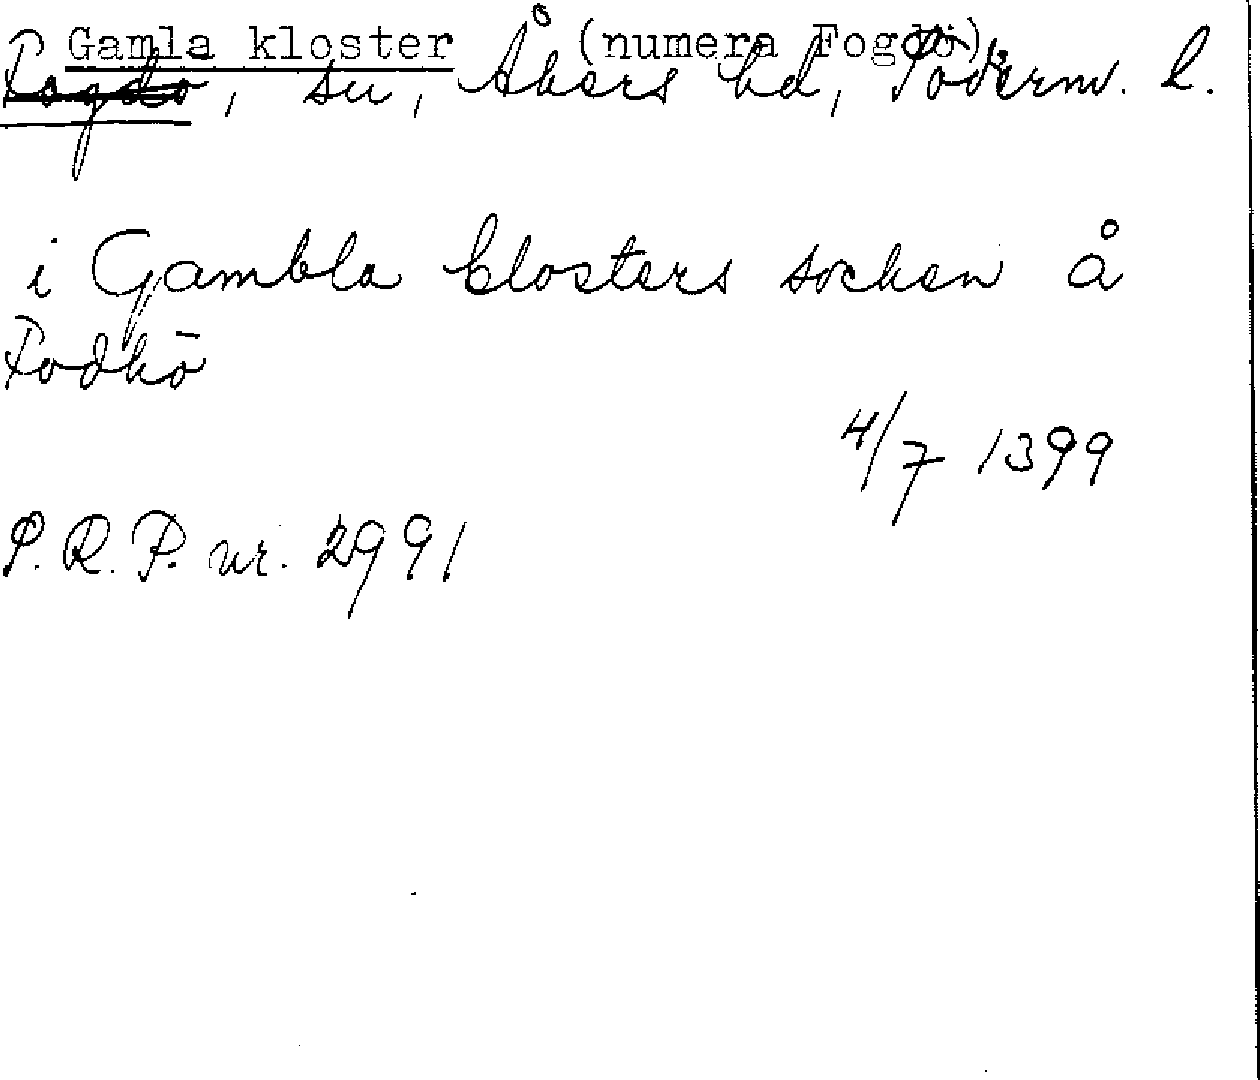 Gamla kloster (numera Fogdö)
Fogdö, sn, Åkers hd, Söderm. l.
i Gambla closters sochen å
Fodhö
4/7 1399
S.R.P. nr. 2991